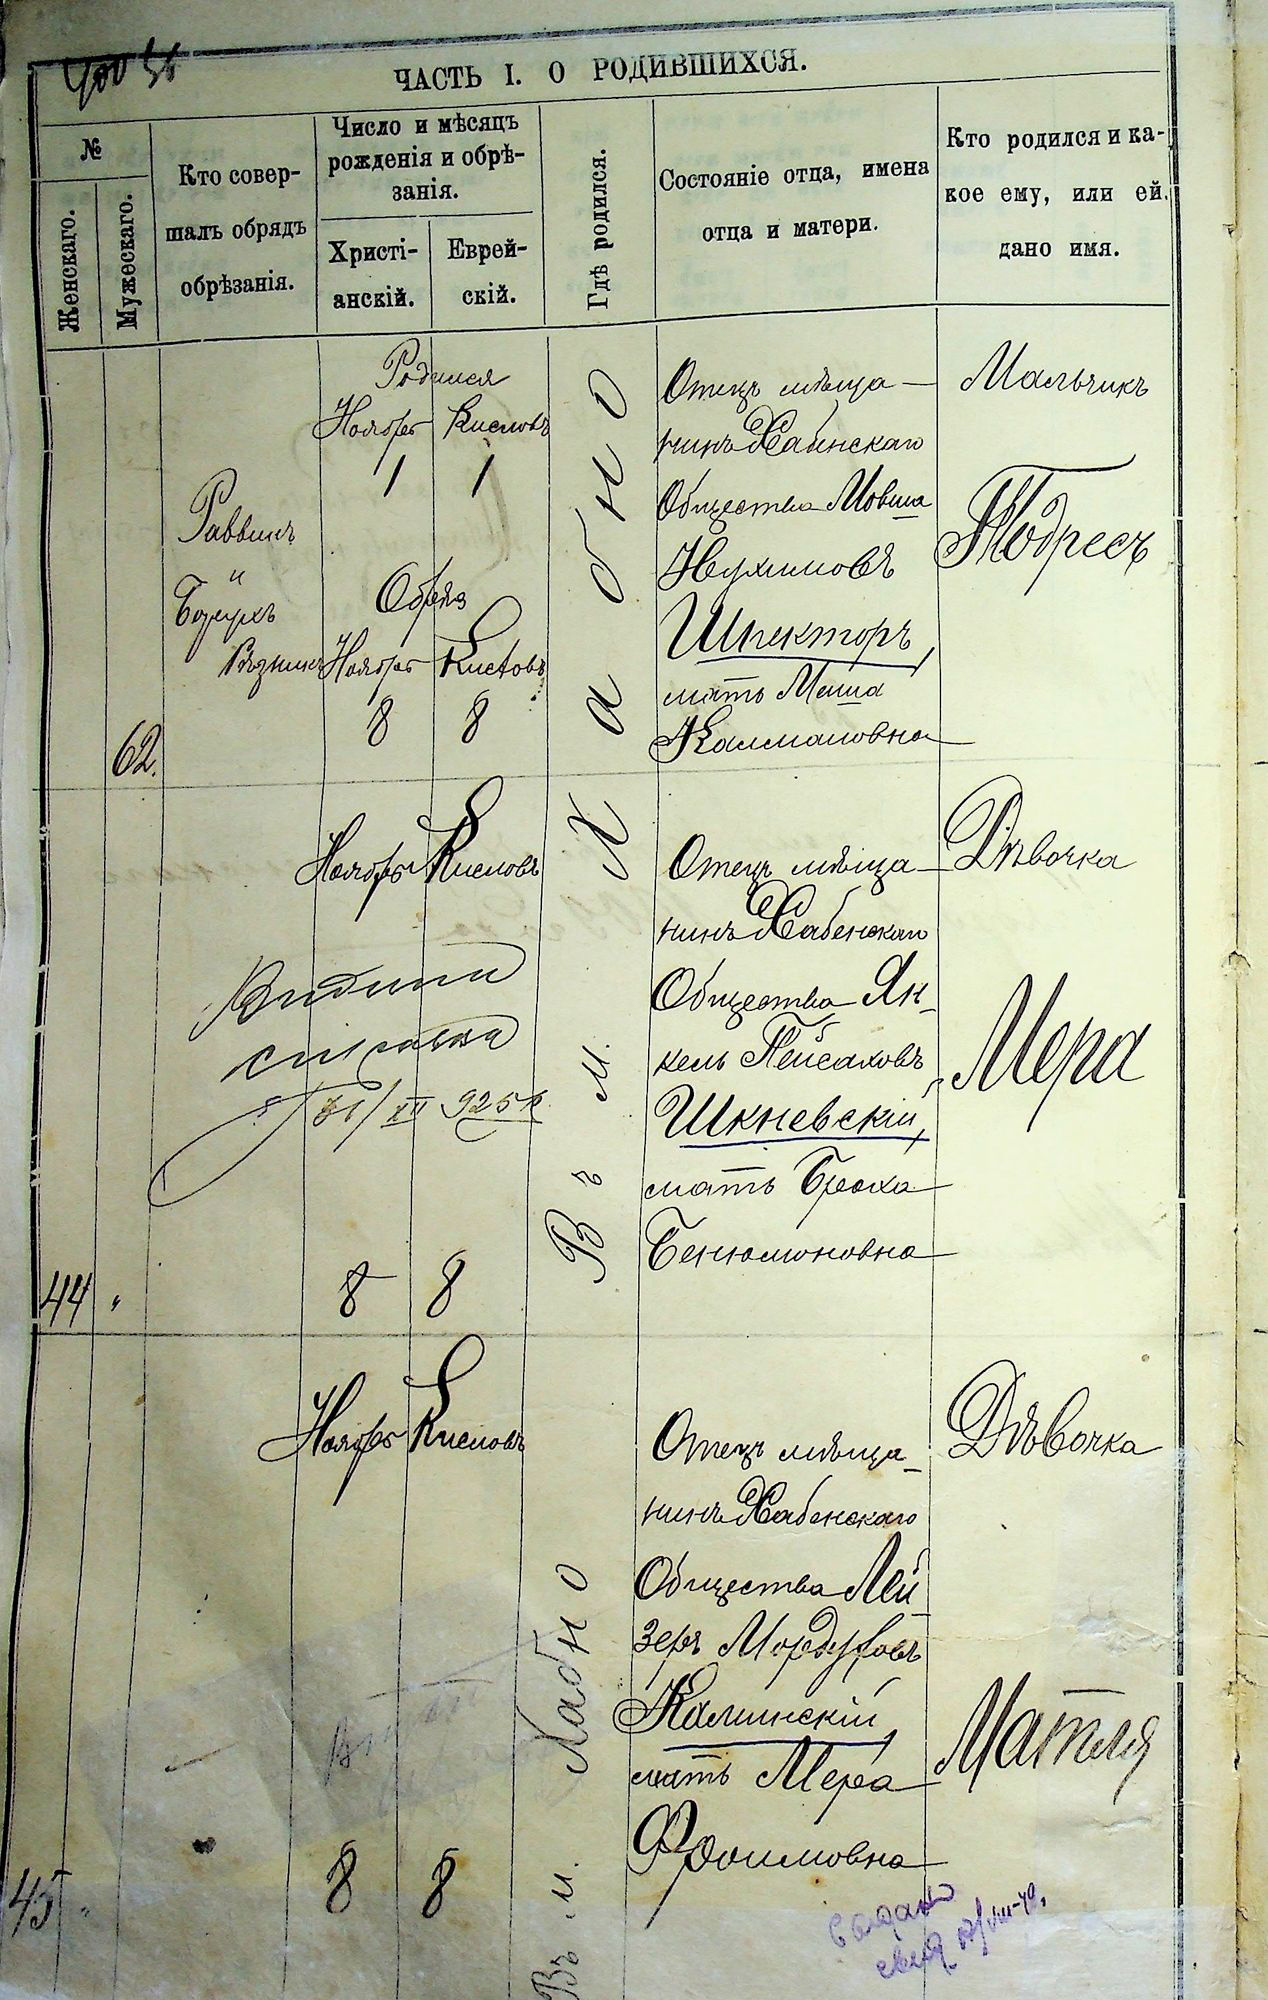 ЧАСТЬ I. О РОДИВШИХСЯ.
№
Женскаго.
Мужескаго.
Кто совер-
шалъ обрядъ
обрѣзанія.
Число и мѣсяцъ
рожденія и обрѣ-
занія.
Христі-
анскій.
Еврей-
скій.
Гдѣ родился.
Состояніе отца, имена
отца и матери.
Кто родился и ка-
кое ему, или ей.
дано имя.
62.
Раввинъ
и
Борухъ
Резникъ
Родился
Ноябрь Кисловъ
1 1
Обрѣз
Ноябрь Кисловъ
8 8
Въ м. Хабно
Отецъ мѣща-
нинъ Хабнскаго
Общества Мовша
Нухимовъ
Шпекторъ,
мать Маша
Калмановна
Мальчикъ
Тодресъ
44 "
Ноябрь Кисловъ
8 8
Видана
справка
31/XII 925 г.
Отецъ мѣща-
нинъ Хабенскаго
Общества Ян-
кель Пейсаховъ
Шкневскій,
мать Броха
Бенюминовна
Дѣвочка
Мера
45 "
Ноябрь Кисловъ
8 8
Въ м. Хабно
Отецъ мѣща-
нинъ Хабенскаго
Общества Лей-
зеръ Мордуховъ
Калинскій,
мать Мера
Фроимовна
Дѣвочка
Матля